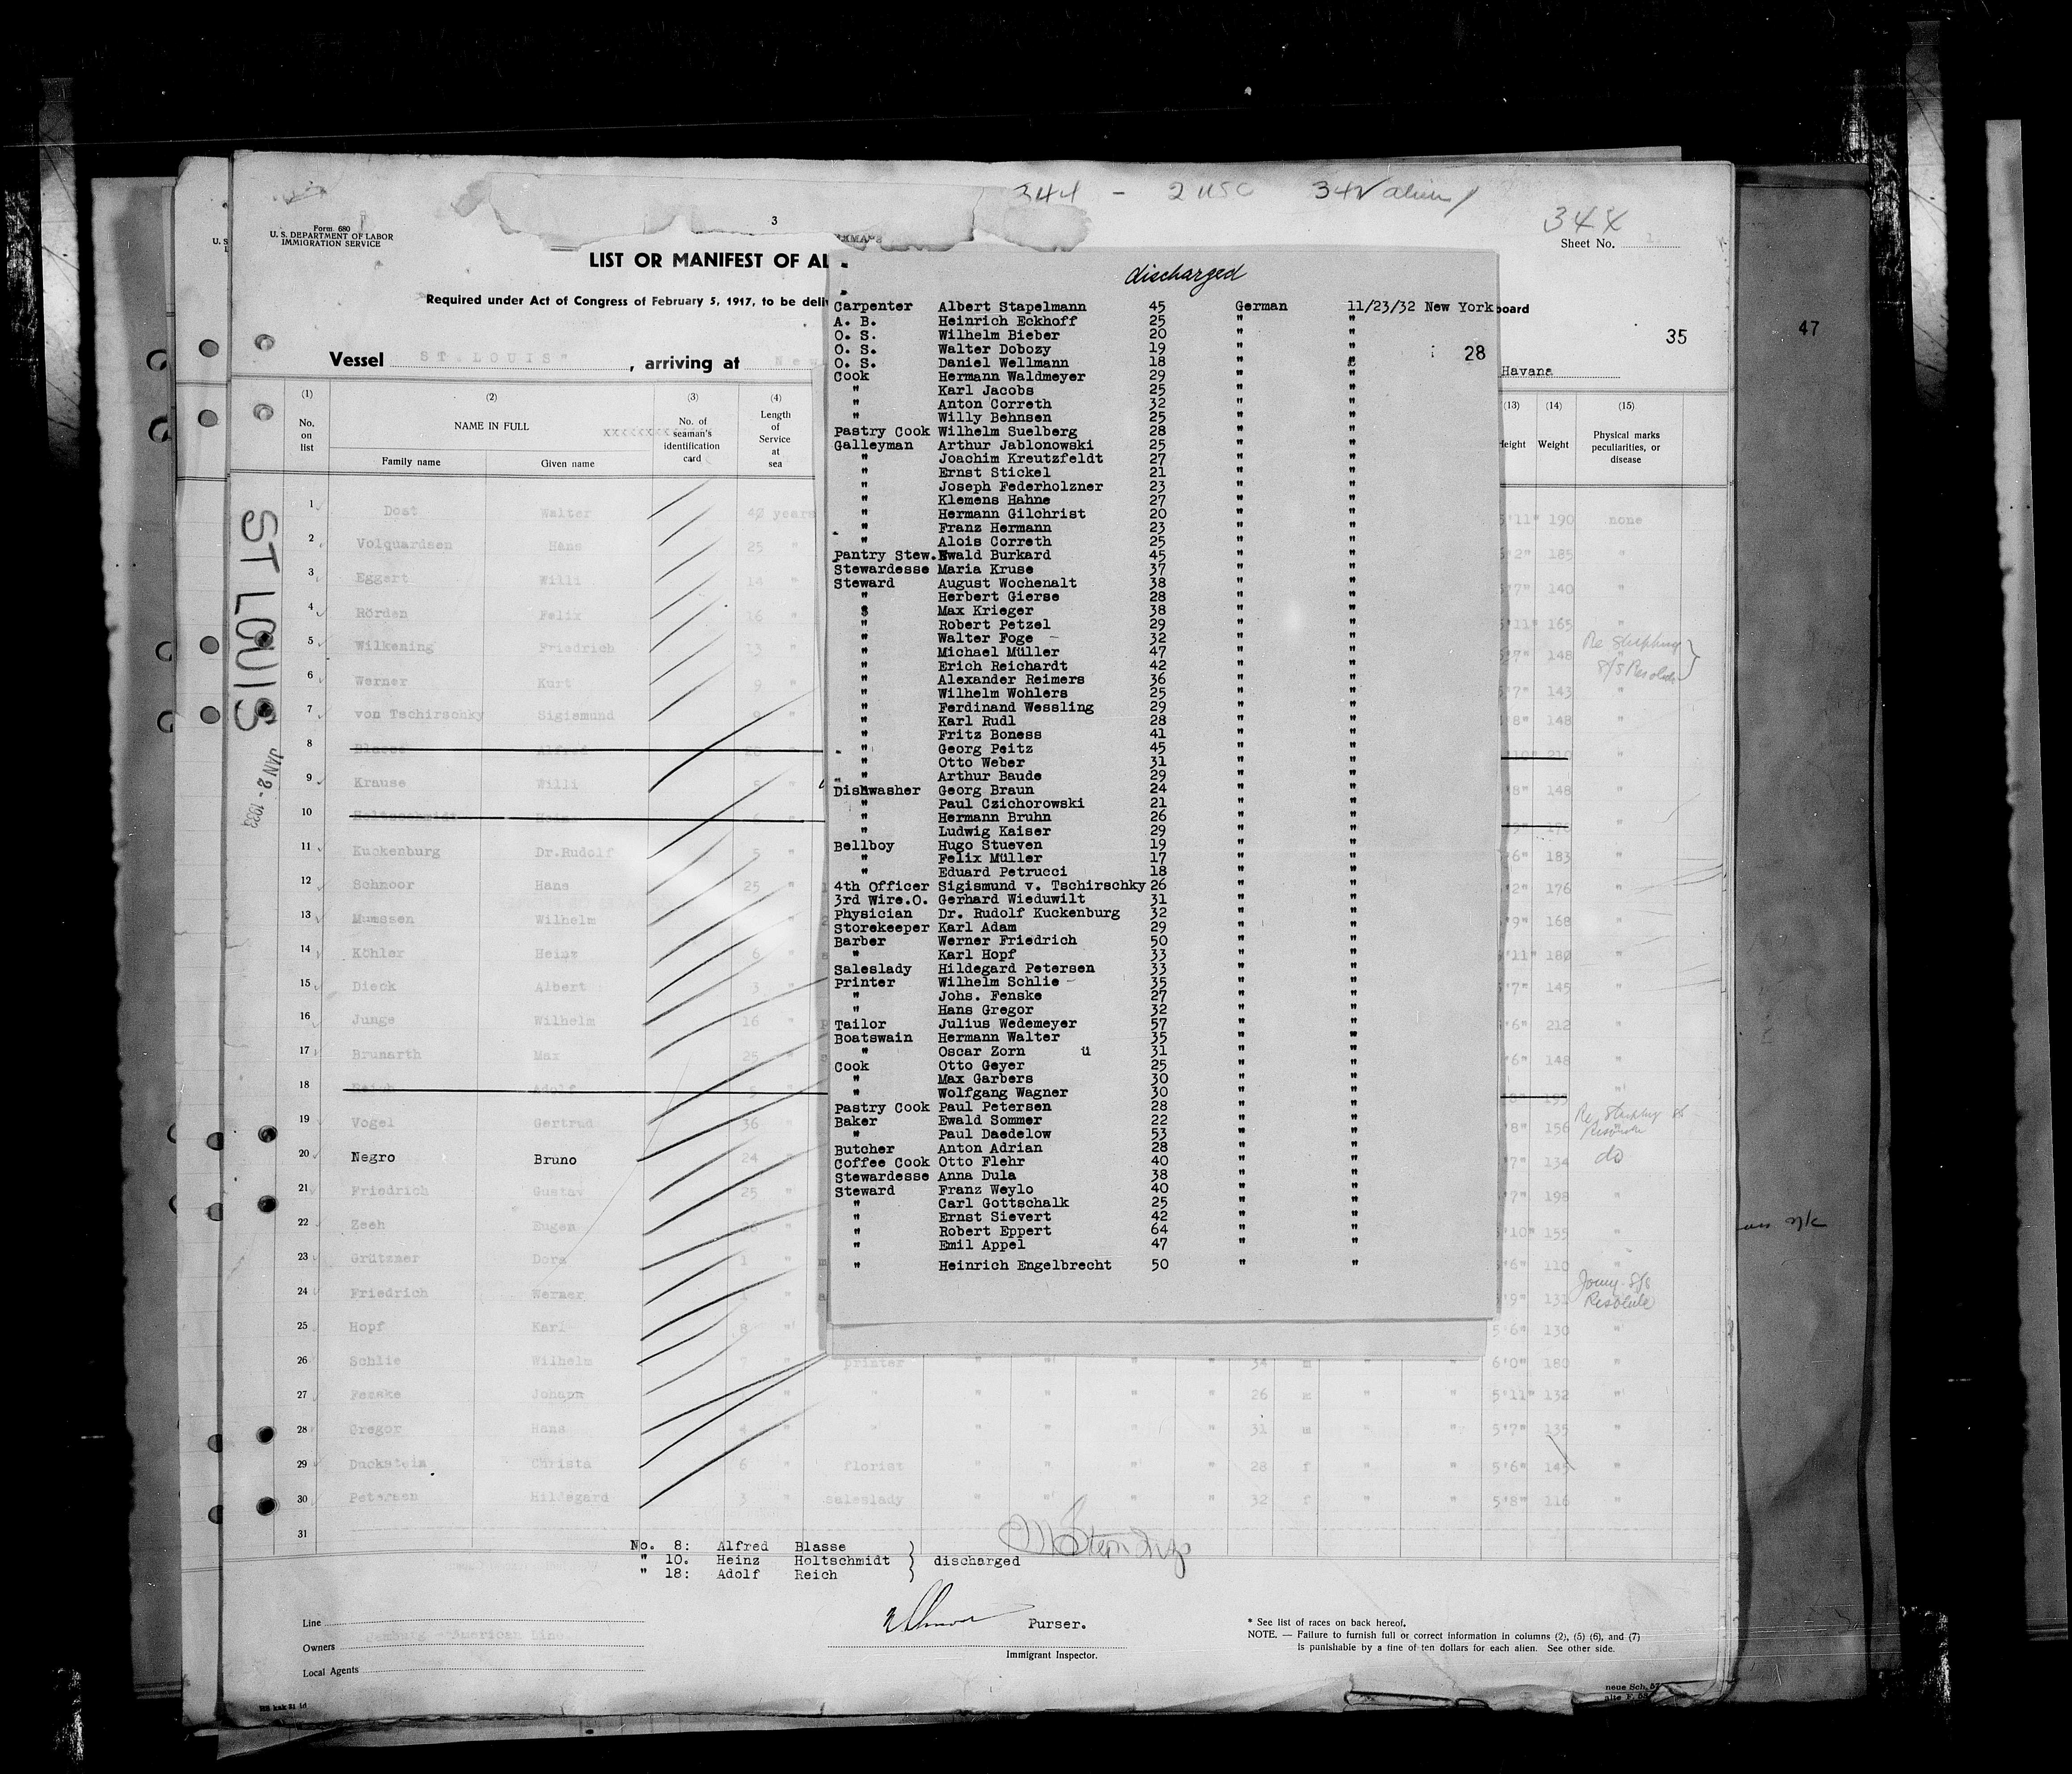 344 - 2 USC 342 aliens
344
Form 680
U. S. DEPARTMENT OF LABOR
IMMIGRATION SERVICE
3
Sheet No.
LIST OR MANIFEST OF AL
Required under Act of Congress of February 5, 1917, to be deli
board
35
47
28
Vessel ST. LOUIS" , arriving at New
Havana
ST LOUIS
JAN 2 - 1933
(1) (2) (3) (4) (13) (14) (15)
No. on list
NAME IN FULL
Family name Given name
No. of seaman's identification card
Length of Service at sea
Height Weight
Physical marks peculiarities, or disease
discharged
Carpenter Albert Stapelmann 45 German 11/23/32 New York
A. B. Heinrich Eckhoff 25 " "
O. S. Wilhelm Bieber 20 " "
O. S. Walter Dobozy 19 " "
O. S. Daniel Wellmann 18 " "
Cook Hermann Waldmeyer 29 " "
" Karl Jacobs 25 " "
" Anton Correth 32 " "
" Willy Behnsen 25 " "
Pastry Cook Wilhelm Suelberg 28 " "
Galleyman Arthur Jablonowski 25 " "
" Joachim Kreutzfeldt 27 " "
" Ernst Stickel 21 " "
" Joseph Federholzner 23 " "
" Klemens Hahne 27 " "
" Hermann Gilchrist 20 " "
" Franz Hermann 23 " "
" Alois Correth 25 " "
Pantry Stew. Ewald Burkard 45 " "
Stewardesse Maria Kruse 37 " "
Steward August Wochenalt 38 " "
" Herbert Gierse 28 " "
" Max Krieger 38 " "
" Robert Petzel 29 " "
" Walter Foge 32 " "
" Michael Müller 47 " "
" Erich Reichardt 42 " "
" Alexander Reimers 36 " "
" Wilhelm Wohlers 25 " "
" Ferdinand Wessling 29 " "
" Karl Rudl 28 " "
" Fritz Boness 41 " "
" Georg Peitz 45 " "
" Otto Weber 31 " "
" Arthur Baude 29 " "
Dishwasher Georg Braun 24 " "
" Paul Czichorowski 21 " "
" Hermann Bruhn 26 " "
" Ludwig Kaiser 29 " "
Bellboy Hugo Stueven 19 " "
" Felix Müller 17 " "
" Eduard Petrucci 18 " "
4th Officer Sigismund v. Tschirschky 26 " "
3rd Wire.O. Gerhard Wieduwilt 31 " "
Physician Dr. Rudolf Kuckenburg 32 " "
Storekeeper Karl Adam 29 " "
Barber Werner Friedrich 50 " "
" Karl Hopf 33 " "
Saleslady Hildegard Petersen 33 " "
Printer Wilhelm Schlie 35 " "
" Johs. Fenske 27 " "
" Hans Gregor 32 " "
Tailor Julius Wedemeyer 57 " "
Boatswain Hermann Walter 35 " "
" Oscar Zorn ü 31 " "
Cook Otto Geyer 25 " "
" Max Garbers 30 " "
" Wolfgang Wagner 30 " "
Pastry Cook Paul Petersen 28 " "
Baker Ewald Sommer 22 " "
" Paul Daedelow 53 " "
Butcher Anton Adrian 28 " "
Coffee Cook Otto Flehr 40 " "
Stewardesse Anna Dula 38 " "
Steward Franz Weylo 40 " "
" Carl Gottschalk 25 " "
" Ernst Sievert 42 " "
" Robert Eppert 64 " "
" Emil Appel 47 " "
" Heinrich Engelbrecht 50 " "
1 Dost Walter 42 years 5'11" 190 none
2 Volquardsen Hans 25 " 185 "
3 Eggert Willi 14 " 140 "
4 Rörden Felix 16 " 165 "
5 Wilkening Friedrich 13 " 148
6 Werner Kurt 9 " 143
7 von Tschirschky Sigismund 148 "
8 Blasse Alfred 210 "
9 Krause Willi 5 " 148 "
10 Holtzschmidt Heinz
11 Kuckenburg Dr.Rudolf 5 " 183 "
12 Schnoor Hans 25 " 176 "
13 Mumssen Wilhelm " 168 "
14 Köhler Heinz 6 " 180 "
15 Dieck Albert 3 " 145 "
16 Junge Wilhelm 16 " 212 "
17 Brunarth Max 25 " 148 "
18 Reich Adolf 5
19 Vogel Gertrud 36 156
20 Negro Bruno 24 134 do
21 Friedrich Gustav 25 " 198 "
22 Zeeh Eugen 155 "
23 Grützner Dora 1 " 110 "
24 Friedrich Werner 131 Resolute
25 Hopf Karl 8 " 5'6" 130 "
26 Schlie Wilhelm 7 " printer 34 m 6'0" 180 "
27 Fenske Johann " 26 m 5'11" 132 "
28 Gregor Hans 4 " 31 m 5'7" 135 "
29 Duckstein Christa 6 " florist 28 f 5'6" 145 "
30 Petersen Hildegard 3 " saleslady 32 f 5'8" 116 "
31
No. 8: Alfred Blasse
" 10. Heinz Holtschmidt } discharged
" 18: Adolf Reich
Line
Owners Hamburg - American Line
Local Agents
Purser.
Immigrant Inspector.
* See list of races on back hereof.
NOTE. — Failure to furnish full or correct information in columns (2), (5) (6), and (7)
is punishable by a fine of ten dollars for each alien. See other side.
neue Sch. 57